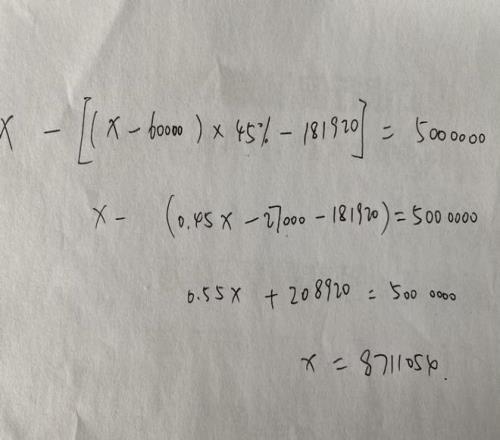 x - [(x - 60000) × 45% - 181920] = 5000000
x - (0.45x - 27000 - 181920) = 5000000
0.55x + 208920 = 5000000
x = 8711054.